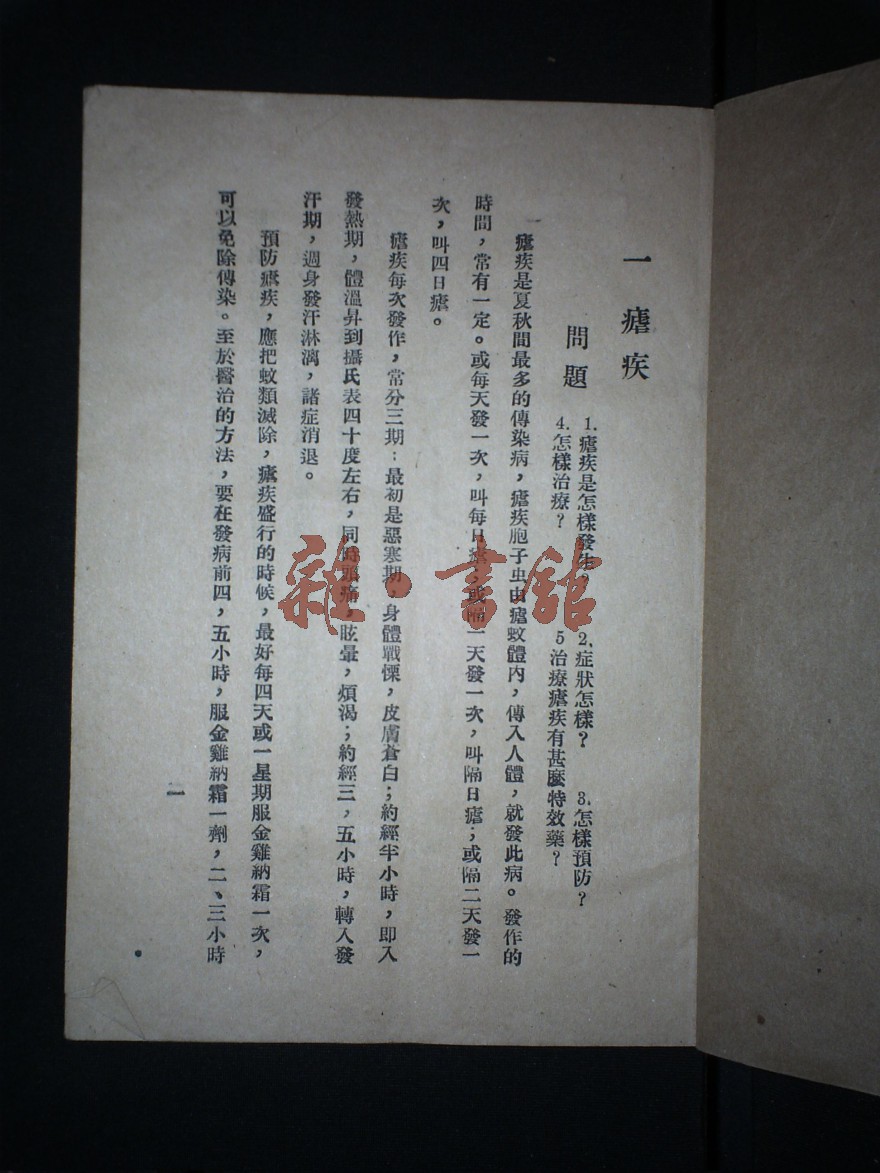 一 瘧疾
問題
1.瘧疾是怎樣發生? 2.症狀怎樣? 3.怎樣預防?
4.怎樣治療? 5治療瘧疾有甚麼特效藥?
瘧疾是夏秋間最多的傳染病,瘧疾胞子虫由瘧蚊體內,傳入人體,就發此病。發作的
時間,常有一定。或每天發一次,叫每日瘧,或隔一天發一次,叫隔日瘧;或隔二天發一
次,叫四日瘧。
瘧疾每次發作,常分三期:最初是惡寒期,身體戰慄,皮膚蒼白;約經半小時,即入
發熱期,體溫昇到攝氏表四十度左右,同時頭痛,眩暈,煩渴;約經三,五小時,轉入發
汗期,週身發汗淋漓,諸症消退。
預防瘧疾,應把蚊類滅除,瘧疾盛行的時候,最好每四天或一星期服金雞納霜一次,
可以免除傳染。至於醫治的方法,要在發病前四,五小時,服金雞納霜一劑,二、三小時
一
雜·書館